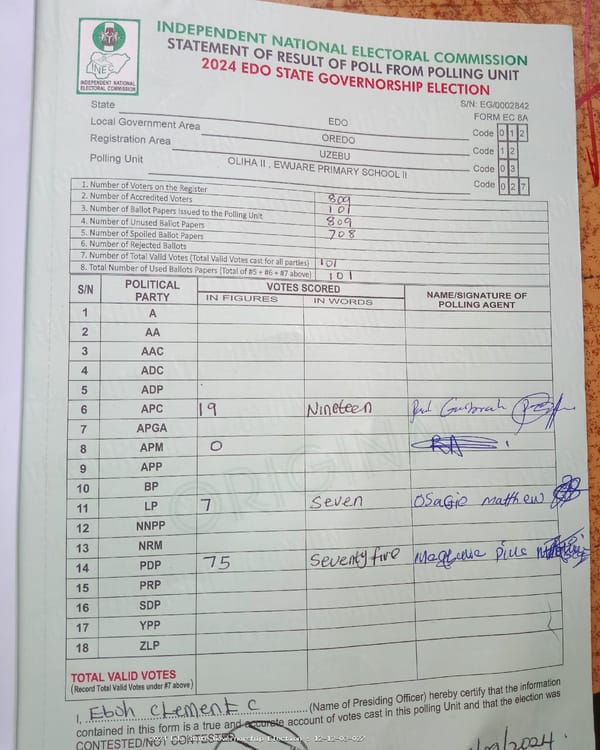 INDEPENDENT NATIONAL ELECTORAL COMMISSION
STATEMENT OF RESULT OF POLL FROM POLLING UNIT
2024 EDO STATE GOVERNORSHIP ELECTION
INEC
INDEPENDENT NATIONAL
ELECTORAL COMMISSION
S/N: EG/0002842
FORM EC 8A
State EDO Code 0 1 2
Local Government Area OREDO Code 1 2
Registration Area UZEBU Code 0 3
Polling Unit OLIHA II , EWUARE PRIMARY SCHOOL II Code 0 2 7
1. Number of Voters on the Register 809
2. Number of Accredited Voters 101
3. Number of Ballot Papers Issued to the Polling Unit 809
4. Number of Unused Ballot Papers 708
5. Number of Spoiled Ballot Papers
6. Number of Rejected Ballots
7. Number of Total Valid Votes (Total Valid Votes cast for all parties) 101
8. Total Number of Used Ballots Papers (Total of #5 + #6 + #7 above) 101
S/N POLITICAL PARTY VOTES SCORED NAME/SIGNATURE OF POLLING AGENT
IN FIGURES IN WORDS
1 A
2 AA
3 AAC
4 ADC
5 ADP
6 APC 19 Nineteen
7 APGA
8 APM 0
9 APP
10 BP
11 LP 7 Seven Osagie Matthew
12 NNPP
13 NRM
14 PDP 75 Seventy five
15 PRP
16 SDP
17 YPP
18 ZLP
ORIGINAL
TOTAL VALID VOTES
(Record Total Valid Votes under #7 above)
I, Eboh Clement C (Name of Presiding Officer) hereby certify that the information
contained in this form is a true and accurate account of votes cast in this polling Unit and that the election was
CONTESTED/NOT CONTESTED
/2024